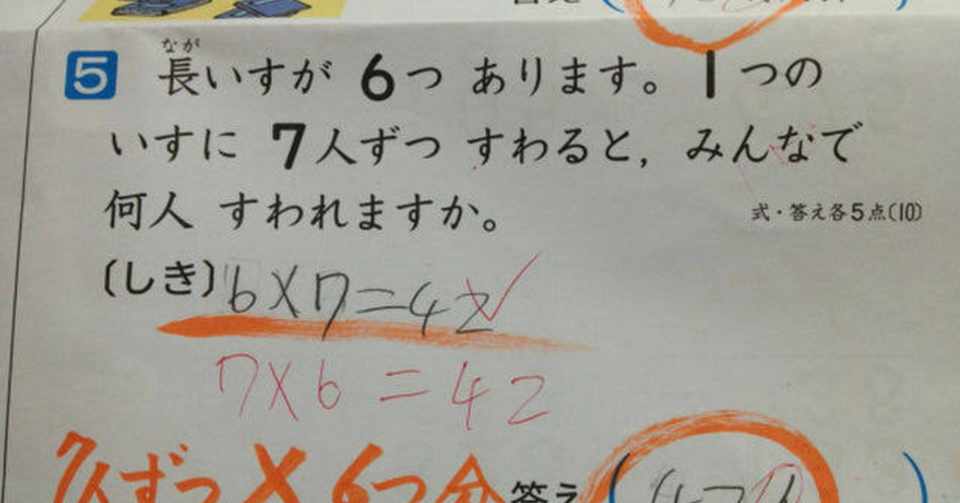 なが
5 長いすが 6つ あります。1つの
いすに 7人ずつ すわると, みんなで
何人 すわれますか。
式・答え各5点(10)
(しき) 6×7=42
7×6=42
7人ずつ×6つ分
答え(